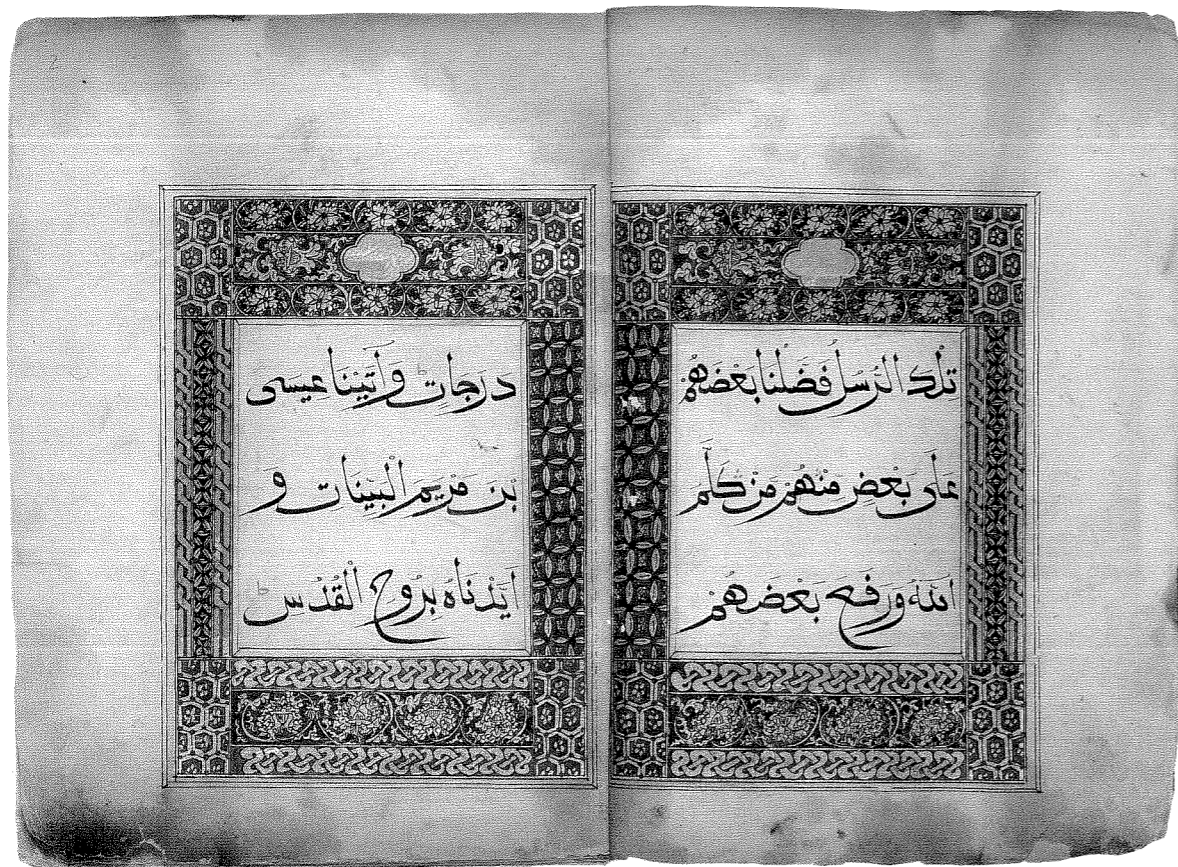 تلك الرسل فضلنا بعضهم
على بعض منهم من كلم
الله ورفع بعضهم
درجات وآتينا عيسى
بن مريم البينات و
ايدناه بروح القدس